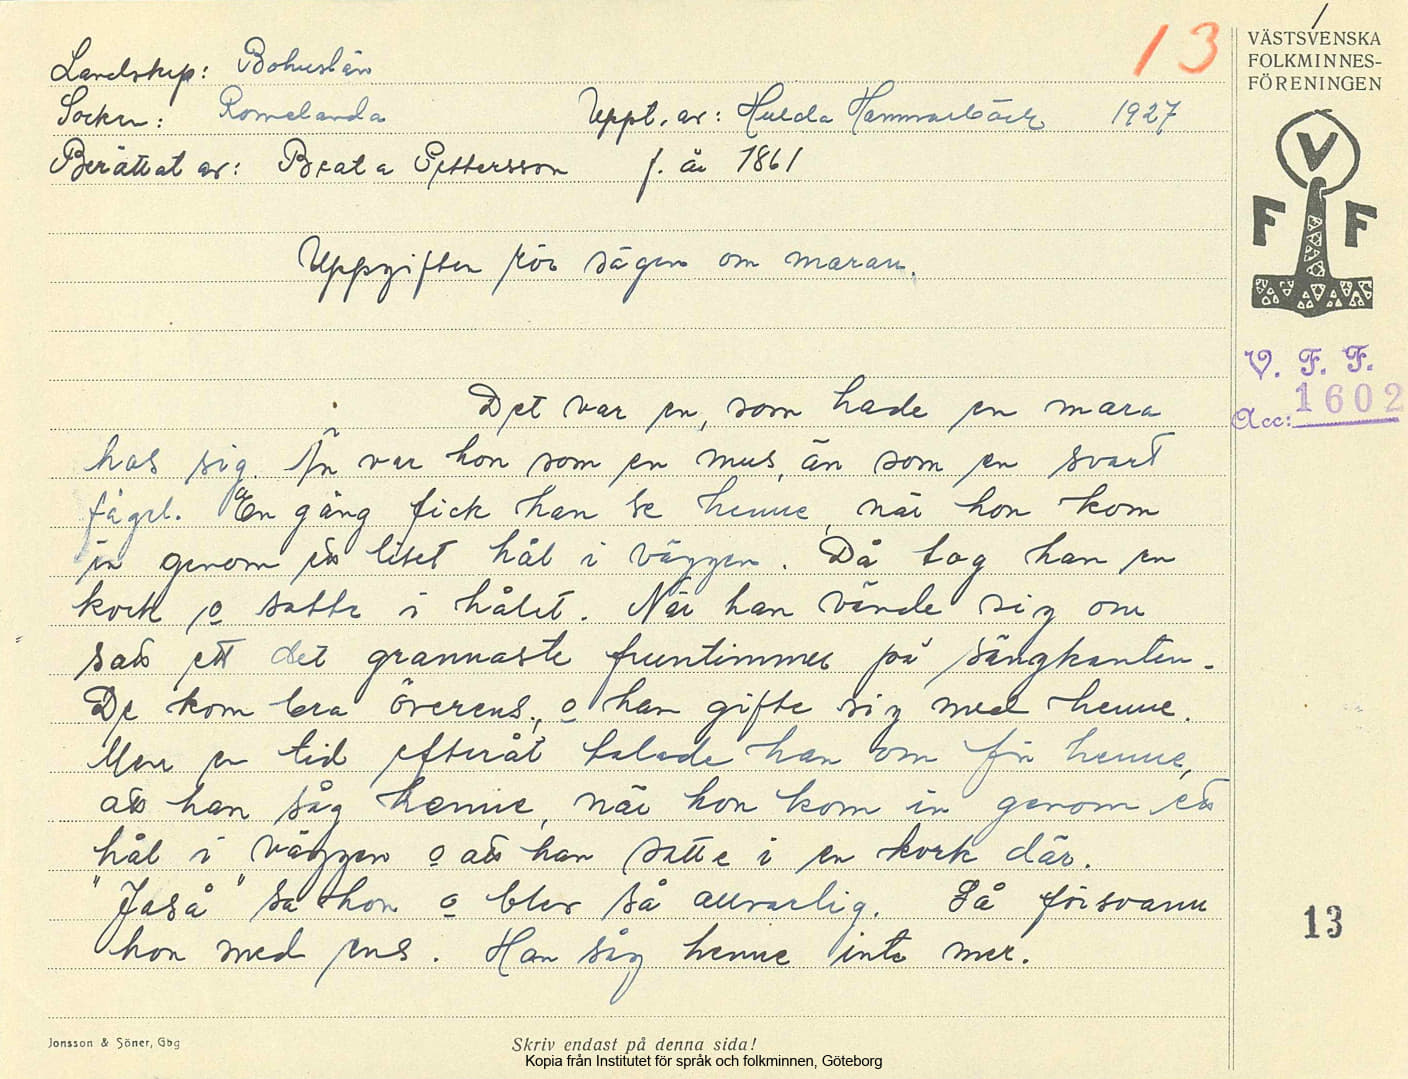 13
VÄSTSVENSKA
FOLKMINNES-
FÖRENINGEN
Landskap: Bohuslän
Socken: Romelanda Uppt. av: Hulda Hammarbäck 1927
Berättat av: Beata Pettersson f. år 1861
V
F F
Uppgiften rör sägen om maran.
V. F. F.
Acc: 1602
Det var en, som hade en mara
hos sig. Än var hon som en mus, än som en svart
fågel. En gång fick han se henne, när hon kom
in genom ett litet hål i väggen. Då tog han en
kork o satte i hålet. När han vände sig om
satt ett det grannaste fruntimmer på sängkanten.
De kom bra överens, o han gifte sig med henne.
Men en tid efteråt talade han om för henne,
att han såg henne, när hon kom in genom ett
hål i väggen o att han satte i en kork där.
"Jaså" sa hon o blev så allvarlig. Så försvann
hon med ens. Han såg henne inte mer.
13
Jonsson & Söner, Gbg
Skriv endast på denna sida!
Kopia från Institutet för språk och folkminnen, Göteborg